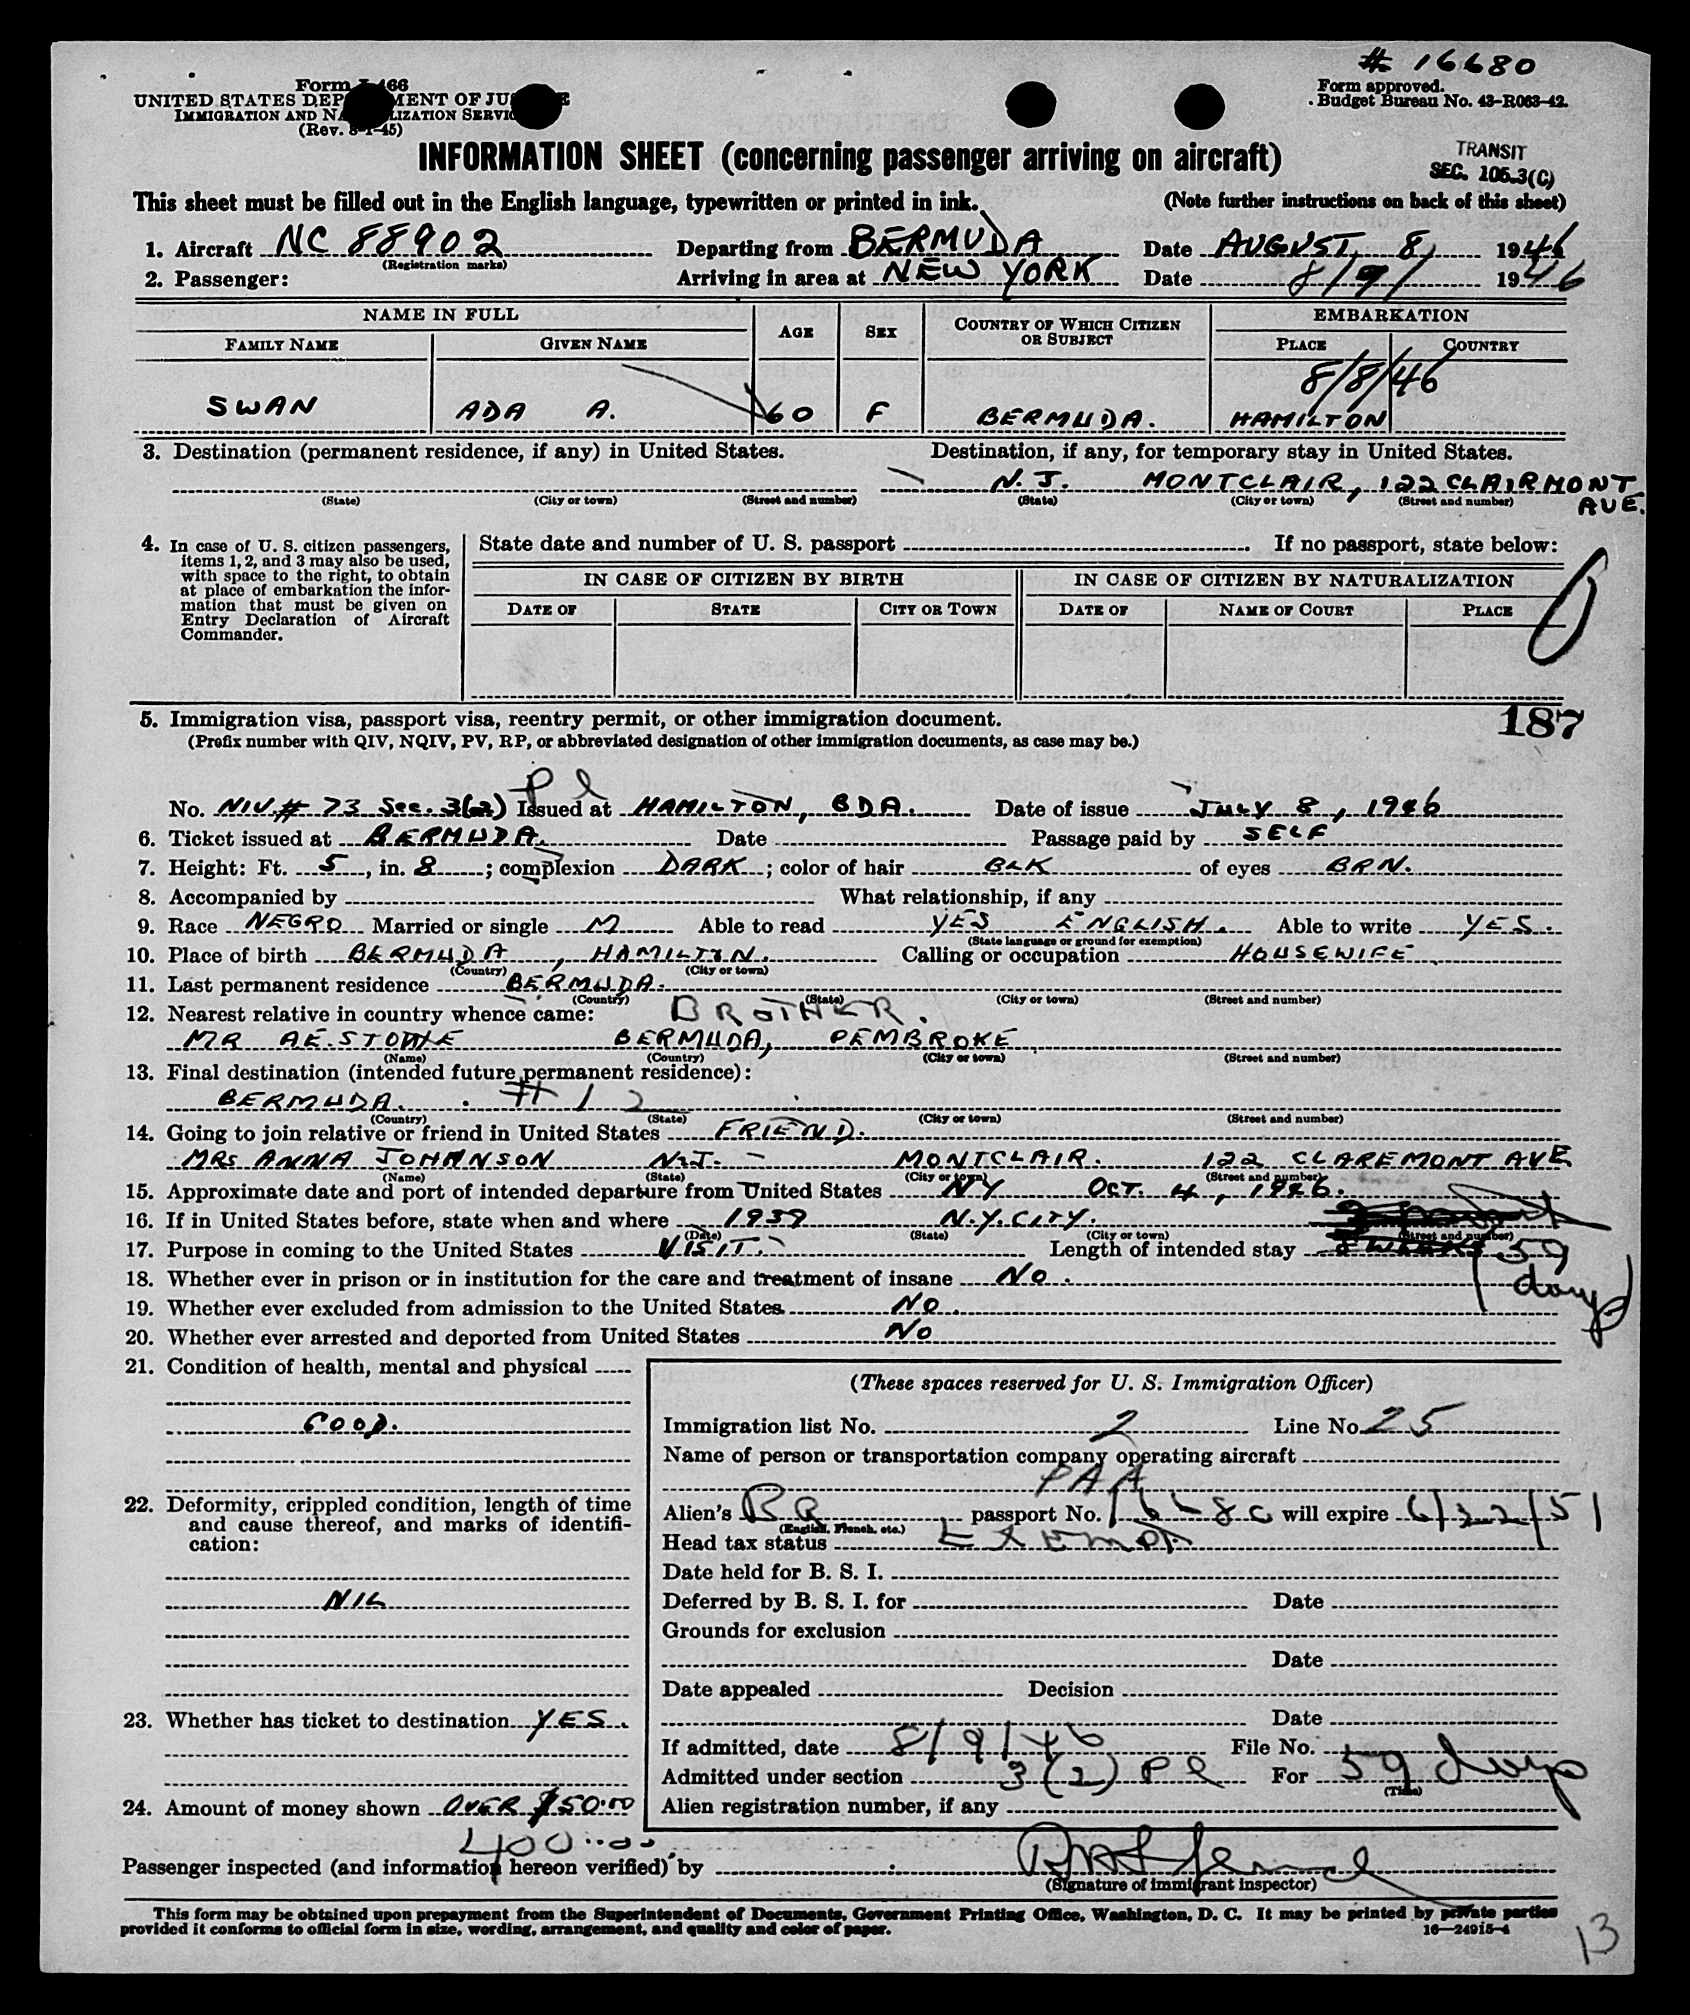 # 16680
Form I-466
UNITED STATES DEPARTMENT OF JUSTICE
IMMIGRATION AND NATURALIZATION SERVICE
(Rev. 8-1-45)
Form approved.
Budget Bureau No. 43-R063-42.
INFORMATION SHEET (concerning passenger arriving on aircraft)
TRANSIT
SEC. 105.3(C)
This sheet must be filled out in the English language, typewritten or printed in ink. (Note further instructions on back of this sheet)
1. Aircraft NC 88902 Departing from BERMUDA Date AUGUST 8, 1946
(Registration marks)
2. Passenger: Arriving in area at NEW YORK Date 8/9/ 1946
NAME IN FULL AGE SEX COUNTRY OF WHICH CITIZEN OR SUBJECT EMBARKATION
FAMILY NAME GIVEN NAME PLACE COUNTRY
8/8/46
SWAN ADA A. 60 F BERMUDA. HAMILTON
3. Destination (permanent residence, if any) in United States. Destination, if any, for temporary stay in United States.
N.J. MONTCLAIR, 122 CLAIRMONT AVE.
(State) (City or town) (Street and number) (State) (City or town) (Street and number)
4. In case of U. S. citizen passengers, items 1, 2, and 3 may also be used, with space to the right, to obtain at place of embarkation the information that must be given on Entry Declaration of Aircraft Commander.
State date and number of U. S. passport . If no passport, state below:
IN CASE OF CITIZEN BY BIRTH IN CASE OF CITIZEN BY NATURALIZATION
DATE OF STATE CITY OR TOWN DATE OF NAME OF COURT PLACE
5. Immigration visa, passport visa, reentry permit, or other immigration document. 187
(Prefix number with QIV, NQIV, PV, RP, or abbreviated designation of other immigration documents, as case may be.)
Pl
No. NIV # 73 Sec. 3(2) Issued at HAMILTON, BDA. Date of issue JULY 8, 1946
6. Ticket issued at BERMUDA. Date Passage paid by SELF
7. Height: Ft. 5, in. 8; complexion DARK; color of hair BLK of eyes BRN.
8. Accompanied by What relationship, if any
9. Race NEGRO Married or single M Able to read YES ENGLISH. Able to write YES.
(State language or ground for exemption)
10. Place of birth BERMUDA, HAMILTON. Calling or occupation HOUSEWIFE
(Country) (City or town)
11. Last permanent residence BERMUDA.
(Country) (State) (City or town) (Street and number)
12. Nearest relative in country whence came: BROTHER.
MR A.E. BERMUDA, PEMBROKE
(Name) (Country) (City or town) (Street and number)
13. Final destination (intended future permanent residence):
BERMUDA. # 12
(Country) (State) (City or town) (Street and number)
14. Going to join relative or friend in United States FRIEND.
MRS ANNA JOHANSON N.J. - MONTCLAIR. 122 CLAREMONT AVE
(Name) (State) (City or town) (Street and number)
15. Approximate date and port of intended departure from United States NY OCT. 4, 1946.
16. If in United States before, state when and where 1939 N.Y. CITY.
(Date) (State) (City or town) (Street and number)
17. Purpose in coming to the United States VISIT. Length of intended stay 59
(days)
18. Whether ever in prison or in institution for the care and treatment of insane NO.
19. Whether ever excluded from admission to the United States NO.
20. Whether ever arrested and deported from United States NO
21. Condition of health, mental and physical
GOOD.
22. Deformity, crippled condition, length of time and cause thereof, and marks of identification:
NIL
23. Whether has ticket to destination YES.
24. Amount of money shown OVER $50.00
400.00
(These spaces reserved for U. S. Immigration Officer)
Immigration list No. 2 Line No. 25
Name of person or transportation company operating aircraft
PAA
Alien's BR passport No. 16680 will expire 6/22/51
(English, French, etc.)
Head tax status Exempt
Date held for B. S. I.
Deferred by B. S. I. for Date
Grounds for exclusion
Date
Date appealed Decision
Date
If admitted, date 8/9/46 File No.
Admitted under section 3(2) Pl For 59 days
(Time)
Alien registration number, if any
Passenger inspected (and information hereon verified) by
(Signature of immigrant inspector)
This form may be obtained upon prepayment from the Superintendent of Documents, Government Printing Office, Washington, D. C. It may be printed by private parties
provided it conforms to official form in size, wording, arrangement, and quality and color of paper. 16—24915-4
13